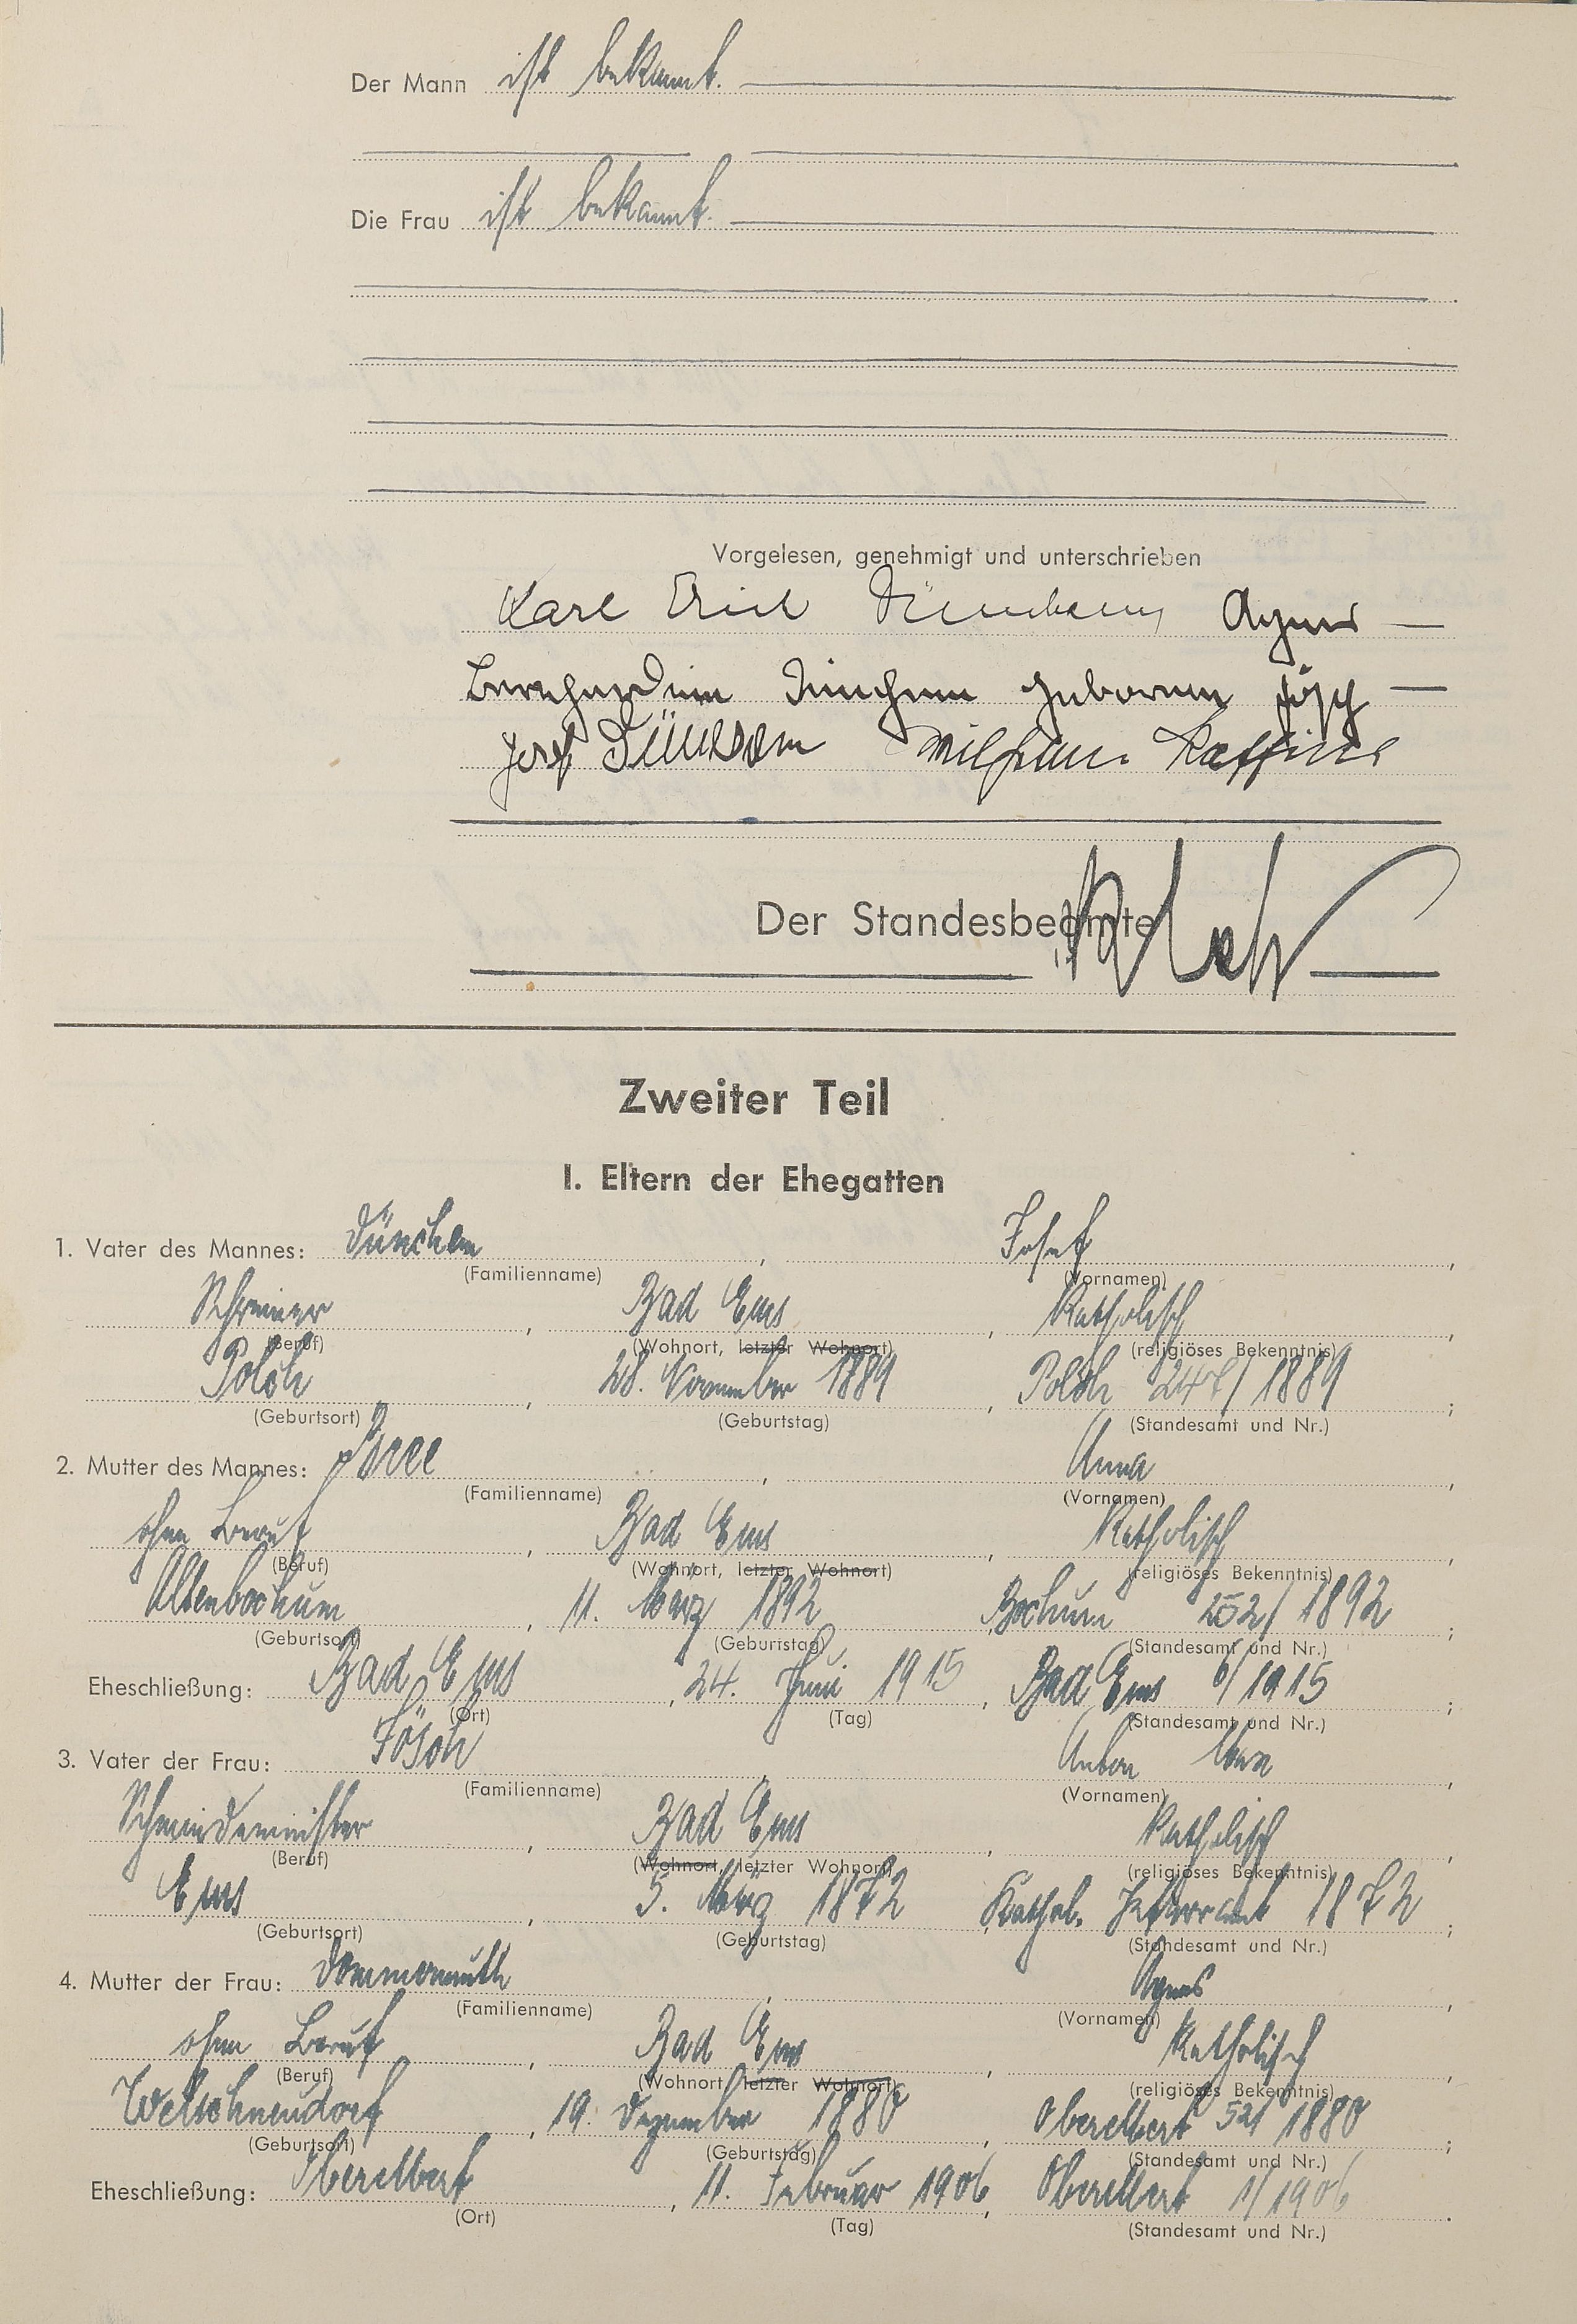 Der Mann ist bekannt.
Die Frau ist bekannt.
Vorgelesen, genehmigt und unterschrieben
Karl Erich Dünchem Agnes
Bernhardine Dünchem geborene Fösch
Josef Dünchem Wilhelm
Der Standesbeamte
Zweiter Teil
I. Eltern der Ehegatten
1. Vater des Mannes: Dünchem, Josef,
(Familienname) (Vornamen)
Schreiner, Bad Ems, Katholisch,
(Beruf) (Wohnort, letzter Wohnort) (religiöses Bekenntnis)
Polch, 28. November 1889, Polch 247/1889;
(Geburtsort) (Geburtstag) (Standesamt und Nr.)
2. Mutter des Mannes: , Anna,
(Familienname) (Vornamen)
ohne Beruf, Bad Ems, Katholisch,
(Beruf) (Wohnort, letzter Wohnort) (religiöses Bekenntnis)
Altenbochum, 11. März 1892, Bochum 252/1892;
(Geburtsort) (Geburtstag) (Standesamt und Nr.)
Eheschließung: Bad Ems, 24. Juni 1915, Bad Ems 6/1915;
(Ort) (Tag) (Standesamt und Nr.)
3. Vater der Frau: Fösch, Anton,
(Familienname) (Vornamen)
Schmiedemeister, Bad Ems, Katholisch,
(Beruf) (Wohnort, letzter Wohnort) (religiöses Bekenntnis)
Ems, 5. März 1872, Kathol. Pfarramt 1872;
(Geburtsort) (Geburtstag) (Standesamt und Nr.)
4. Mutter der Frau: Dommermuth, Agnes,
(Familienname) (Vornamen)
ohne Beruf, Bad Ems, Katholisch,
(Beruf) (Wohnort, letzter Wohnort) (religiöses Bekenntnis)
Welschneudorf, 19. Dezember 1880, Oberelbert 52/1880;
(Geburtsort) (Geburtstag) (Standesamt und Nr.)
Eheschließung: Oberelbert, 11. Februar 1906, Oberelbert 1/1906.
(Ort) (Tag) (Standesamt und Nr.)